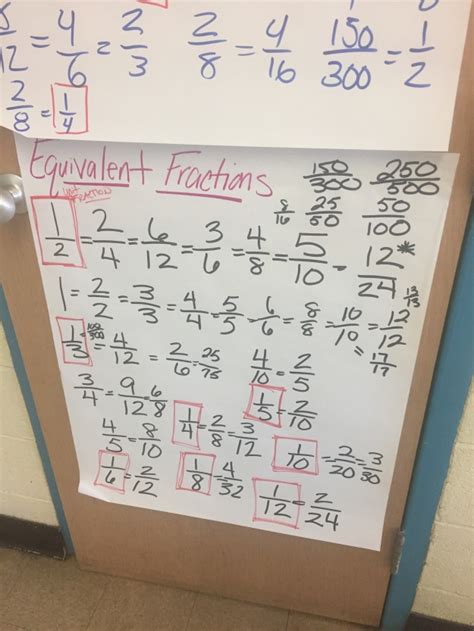 12 = 4/6 = 2/3 2/8 = 4/16 150/300 = 1/2
2/8 = 1/4
Equivalent Fractions
150/300 250/500
8/16 25/50 50/100
1/2 = 2/4 = 6/12 = 3/6 = 4/8 = 5/10 = 12/24 *
1 = 2/2 = 3/3 = 4/4 = 5/5 = 6/6 = 8/8 = 10/10 = 12/12 13/13
= 17/17
1/3 = 100/300 = 4/12 = 2/6 = 25/75 4/10 = 2/5
3/4 = 9/12 = 6/8 1/5 = 2/10
4/5 = 8/10 1/4 = 2/8 = 3/12 1/10 = 2/20 = 3/30
1/6 = 2/12 1/8 = 4/32 1/12 = 2/24